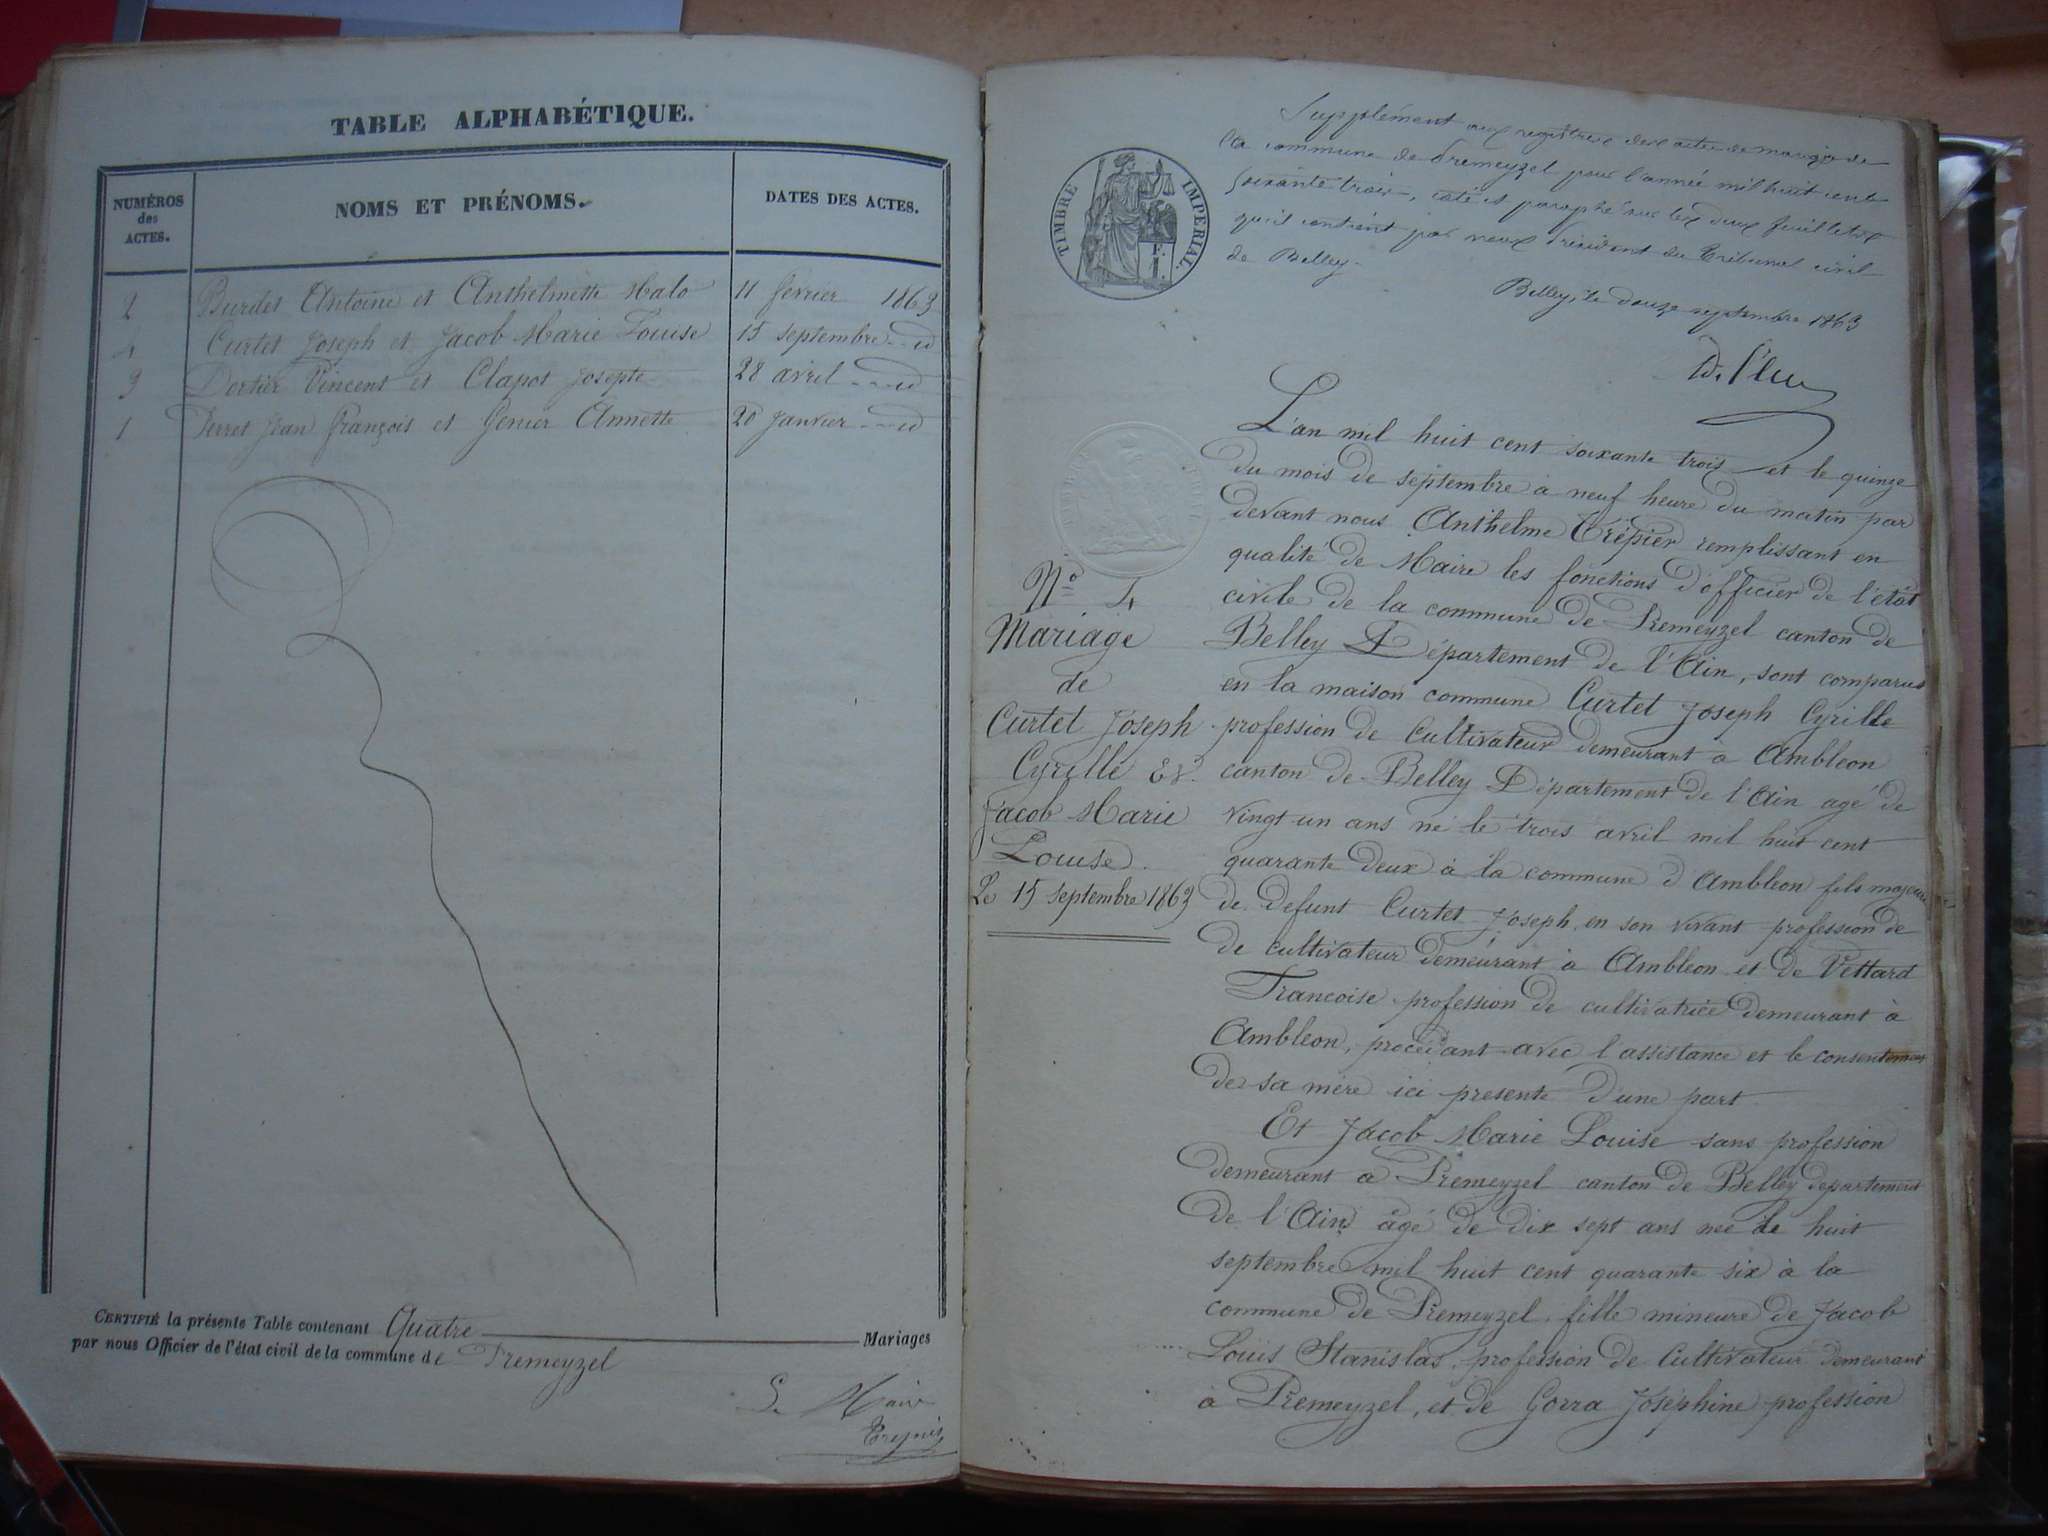 TABLE ALPHABÉTIQUE.
NUMÉROS
des
ACTES.
NOMS ET PRÉNOMS.
DATES DES ACTES.
2 Burdet Antoine et Anthelmette Malo 11 février 1863
4 Curtet Joseph et Jacob Marie Louise 15 septembre id
3 Dortier Vincent et Clapot Josepte 28 avril id
1 Perret Jean François et Genier Annette 20 janvier id
CERTIFIÉ la présente Table contenant Quatre Mariages
par nous Officier de l'état civil de la commune de Premeyzel
Le Maire
Trepier
TIMBRE IMPERIAL.
F.
1.
Supplément aux registres des actes de mariage de
la commune de Premeyzel pour l'année mil huit cent
soixante trois, coté et paraphé sur les deux feuillets
qu'il contient par nous Président du Tribunal civil
de Belley.
Belley, le douze septembre 1863
L'an mil huit cent soixante trois et le quinze
du mois de septembre à neuf heure du matin par
devant nous Anthelme Trépier remplissant en
qualité de Maire les fonctions d'officier de l'état
civile de la commune de Premeyzel canton de
Belley Département de l'Ain, sont comparus
en la maison commune Curtet Joseph Cyrille
profession de cultivateur demeurant a Ambleon
canton de Belley Département de l'Ain agé de
vingt un ans né le trois avril mil huit cent
quarante deux à la commune d'Ambleon fils majeur
de defunt Curtet Joseph, en son vivant profession de
de cultivateur demeurant à Ambleon et de Vettard
Francoise profession de cultivatrice demeurant à
Ambleon, procédant avec l'assistance et le consentement
de sa mère ici presente d'une part
Et Jacob Marie Louise sans profession
demeurant a Premeyzel canton de Belley departement
de l'Ain âgé de dix sept ans neé le huit
septembre mil huit cent quarante six à la
commune de Premeyzel, fille mineure de Jacob
Louis Stanislas, profession de cultivateur demeurant
à Premeyzel, et de Gorra Joséphine profession
No 4
Mariage
de
Curtet Joseph
Cyrille Et
Jacob Marie
Louise
Le 15 septembre 1863